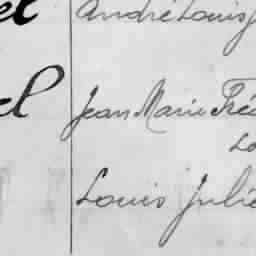 el André Louis J
el Jean Marie Fré
Lo
Louis Julie